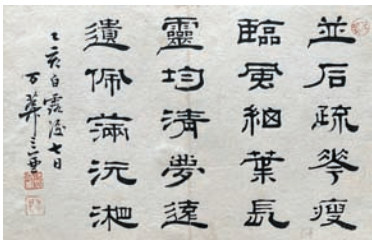 並石疏花瘦
臨風細葉長
靈均清夢遠
遺佩滿沅湘
乙亥白露後七日